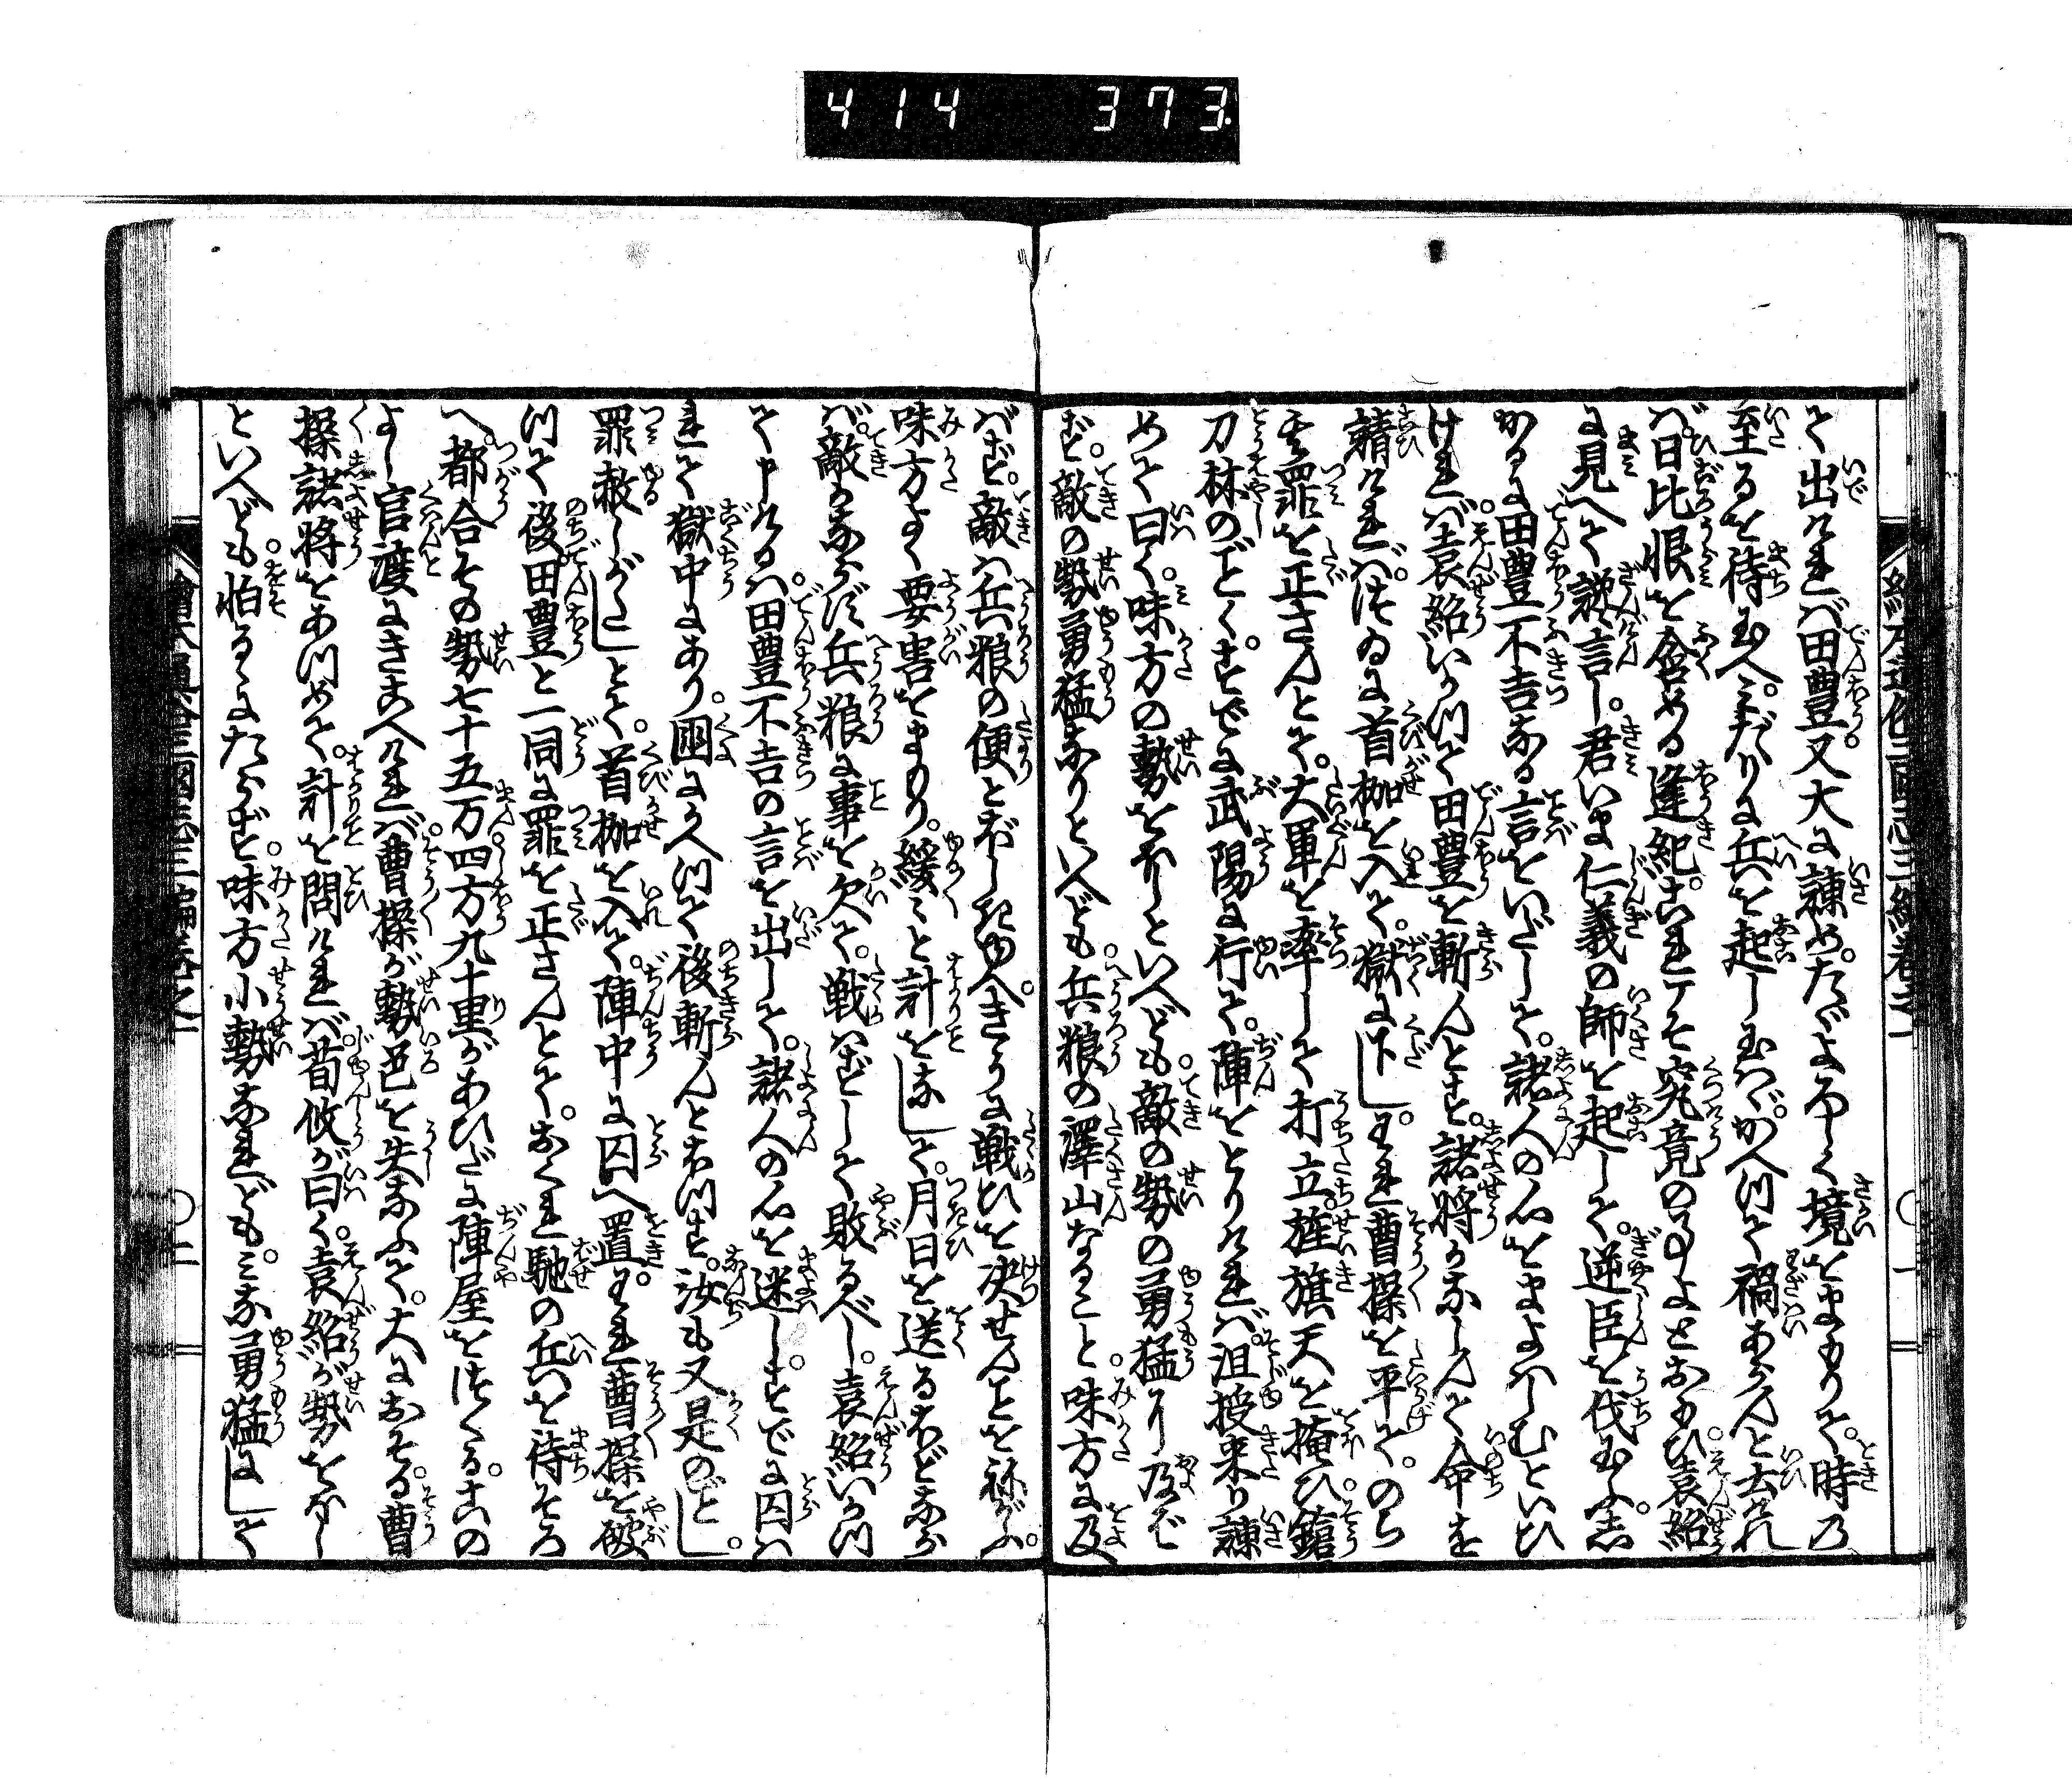 414 373
て出ければ田豊。又大に諫め。たゞよろしく境をまもりて。時の
至るを待玉へ。みだりに兵を起し玉はゞ。かへつて禍あらんと云けれ
ば。日比恨を含める逢紀。これこそ究竟の事よとおもひ。袁紹
に見へて讒言し。君いま仁義の師を起して。逆臣を伐玉ふ。志
かるに田豊不吉なる言をいだして。諸人の心をまよはしむといひ
ければ。袁紹いかつて田豊を斬んとす。諸将かなしんで命を
請ければ。つゐに首枷を入て。獄に下し。われ曹操を平て。のち
其罪を正さんとて。大軍を率して打立。旌旗天を掩ひ。鎗
刀林のごとく。すでに武陽に行て。陣をとりければ。沮授来り諫
めて曰く。味方の勢をほしといへども。敵の勢の勇猛に及ば
ず。敵の勢勇猛なりといへども。兵粮の澤山なること。味方に及
ばず。敵は兵粮の便とぼしきゆへ。きうに戦ひを决せんことをねがふ。
味方よく要害をまもり。緩々と計をなして。月日を送るほどなら
ば。敵かならず兵粮に事を欠て。戦はずして敗るべし。袁紹いかつ
て申けるは。田豊不吉の言を出して。諸人の心を迷し。すでに囚は
れて獄中にあり。囬にかへつて後斬んとおもふ。汝も又是のごとし。
罪赦しがたしとて。首枷を入て。陣中に囚へ置。われ曹操を破
つて後田豊と一同に罪を正さんとて。おくれ馳の兵を待そろ
へ。都合その勢七十五万。四方九十里があひだに陣屋をつくる。この
よし官渡にきこへければ。曹操が勢色を失なふて。大におそる。曹
操諸将をあつめて。計を問ければ。荀攸が曰く。袁紹が勢をほし
といへども。怕るゝにたらず。味方小勢なれども。みな勇猛にして